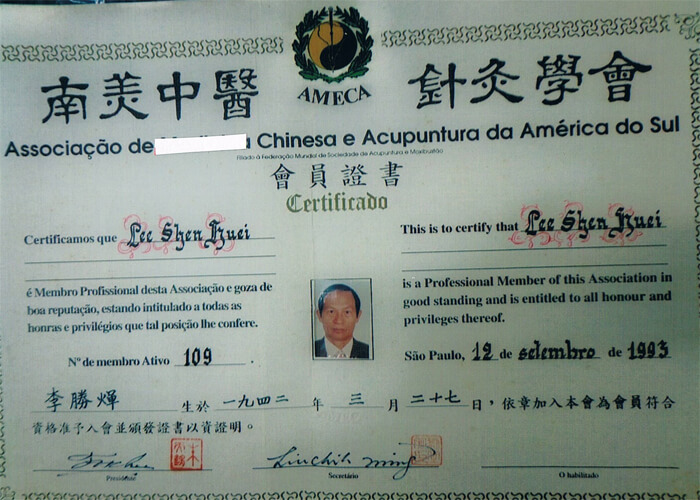 AMECA
南美中醫 針灸學會
Associação de a Chinesa e Acupuntura da América do Sul
Filiado à Federação Mundial de Sociedade de Acupuntura e Moxibustão
會員證書
Certificado
Certificamos que Lee Shen Huei
é Membro Profissional desta Associação e goza de
boa reputação, estando intitulado a todas as
honras e privilégios que tal posição lhe confere.
Nº de membro Ativo 109 .
This is to certify that Lee Shen Huei
is a Professional Member of this Association in
good standing and is entitled to all honour and
privileges thereof.
São Paulo, 12 de setembro de 1993
李勝煇 生於 一九四二 年 三 月 二十七 日，依章加入本會為會員符合
資格准予入會並頒發證書以資證明。
Presidente
Secretário
O habilitado